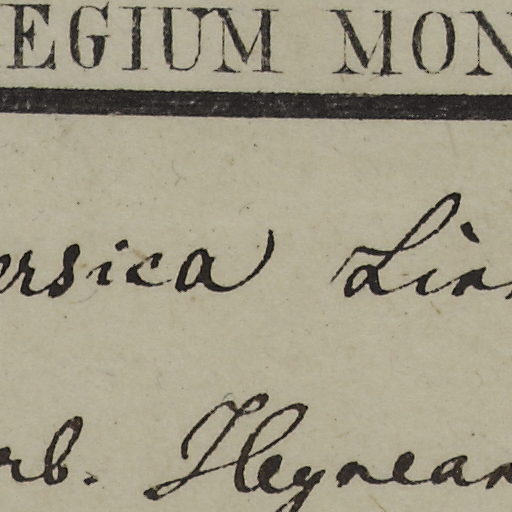 EGIUM MON
ersica Linn
rb. Heynean